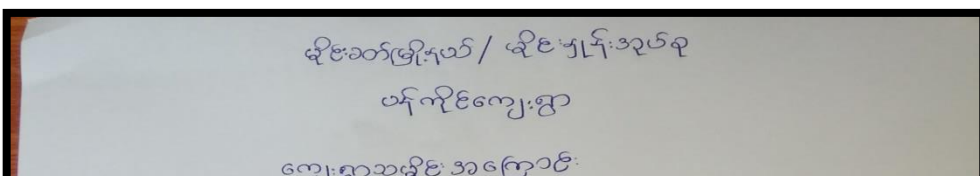 မိုင်းခတ်မြို့နယ် / မိုင်းပျုန်းအုပ်စု
ပန်ကိုင်ကျေးရွာ
ကျေးရွာသမိုင်းအကြောင်း